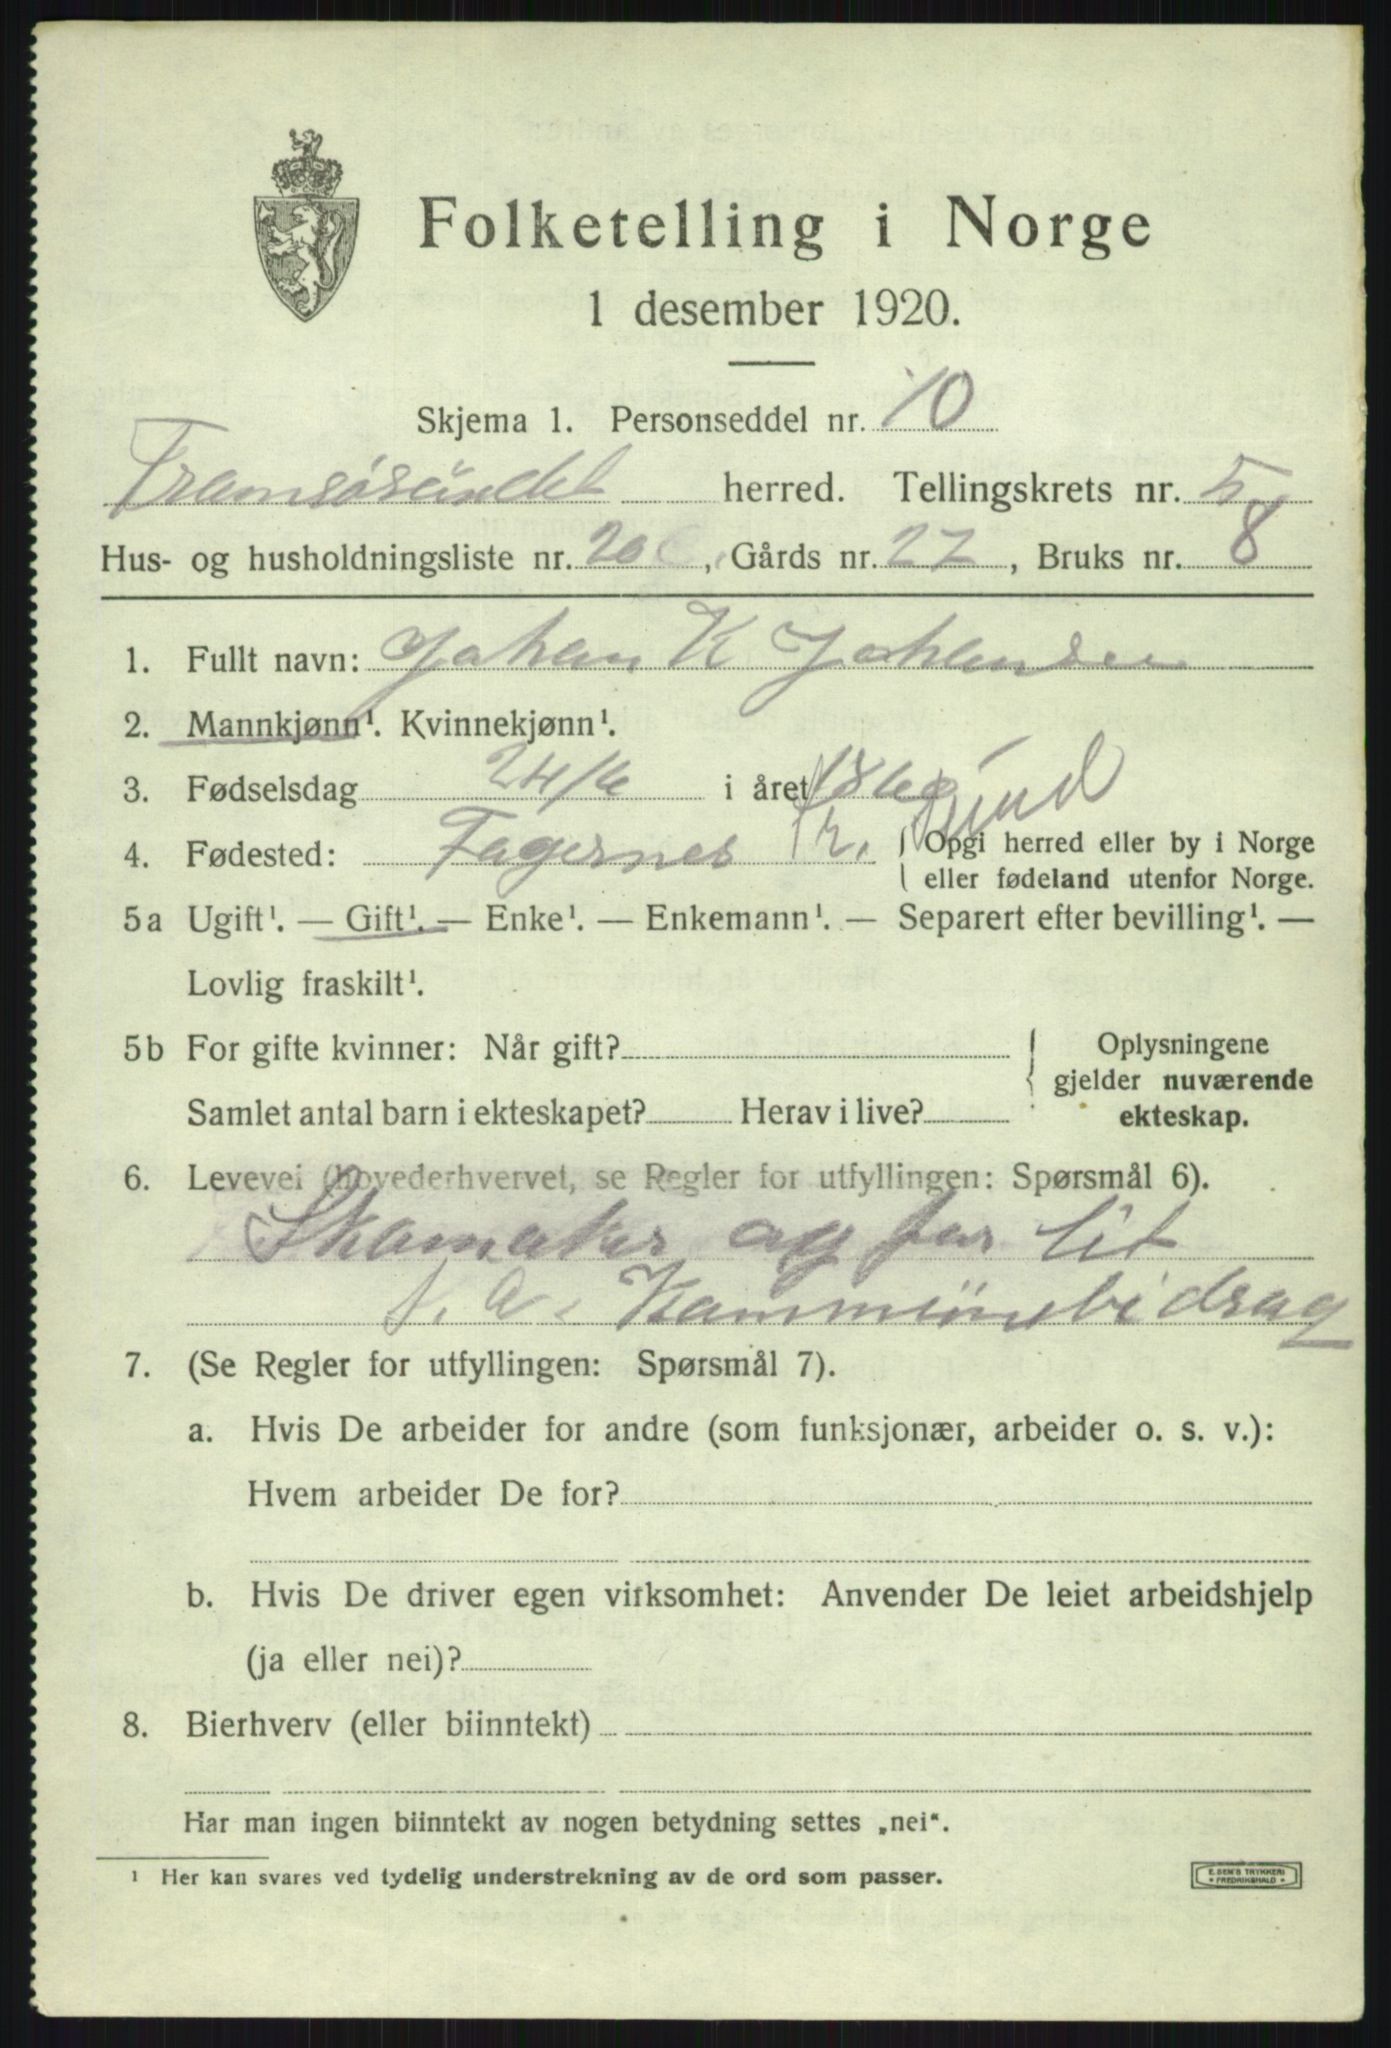 Folketelling i Norge
1 desember 1920.
Skjema 1. Personseddel nr. 10
Tromsøsundet herred. Tellingskrets nr. 5
Hus- og husholdningsliste nr. 20, Gårds nr. 27, Bruks nr. 8
1. Fullt navn: Johan K Johansen
2. Mannkjønn¹. Kvinnekjønn¹.
3. Fødselsdag 24/6 i året 1860
4. Fødested: Fagernes Tr. sund { Opgi herred eller by i Norge
eller fødeland utenfor Norge.
5a Ugift¹. — Gift¹. — Enke¹. — Enkemann¹. — Separert efter bevilling¹. —
Lovlig fraskilt¹.
5b For gifte kvinner: Når gift? { Oplysningene
gjelder nuværende
Samlet antal barn i ekteskapet? Herav i live? ekteskap.
6. Levevei (hovederhvervet, se Regler for utfyllingen: Spørsmål 6).
Skomaker og får lit
Kommunebidrag
7. (Se Regler for utfyllingen: Spørsmål 7).
a. Hvis De arbeider for andre (som funksjonær, arbeider o. s. v.):
Hvem arbeider De for?
b. Hvis De driver egen virksomhet: Anvender De leiet arbeidshjelp
(ja eller nei)?
8. Bierhverv (eller biinntekt)
Har man ingen biinntekt av nogen betydning settes „nei“.
¹ Her kan svares ved tydelig understrekning av de ord som passer.
E. SEM'S TRYKKERI
* FREDRIKSHALD *